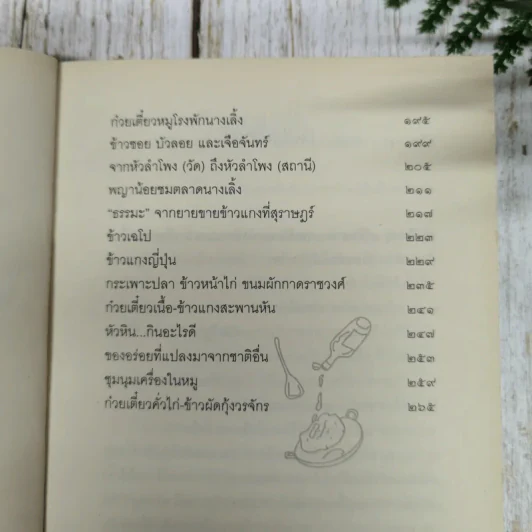 ก๋วยเตี๋ยวหมูโรงพักนางเลิ้ง ๑๙๕
ข้าวซอย บัวลอย และเจือจันทร์ ๑๙๙
จากหัวลำโพง (วัด) ถึงหัวลำโพง (สถานี) ๒๐๕
พญาน้อยชมตลาดนางเลิ้ง ๒๑๑
“ธรรมะ” จากยายขายข้าวแกงที่สุราษฎร์ ๒๑๗
ข้าวเฉโป ๒๒๓
ข้าวแกงญี่ปุ่น ๒๒๙
กระเพาะปลา ข้าวหน้าไก่ ขนมผักกาดราชวงศ์ ๒๓๕
ก๋วยเตี๋ยวเนื้อ-ข้าวแกงสะพานหัน ๒๔๑
หัวหิน...กินอะไรดี ๒๔๗
ของอร่อยที่แปลงมาจากชาติอื่น ๒๕๓
ชุมนุมเครื่องในหมู ๒๕๙
ก๋วยเตี๋ยวคั่วไก่-ข้าวผัดกุ้งวรจักร ๒๖๕